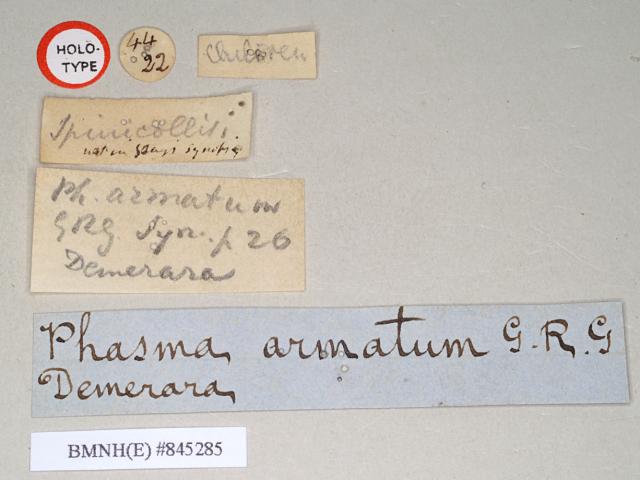 HOLO-
TYPE
44
22
Children
Spinicollis,
not in Grays synopsis
Ph. armatum
GRG Syn. p 26
Demerara
Phasma armatum G.R.G
Demerara
BMNH(E) #845285